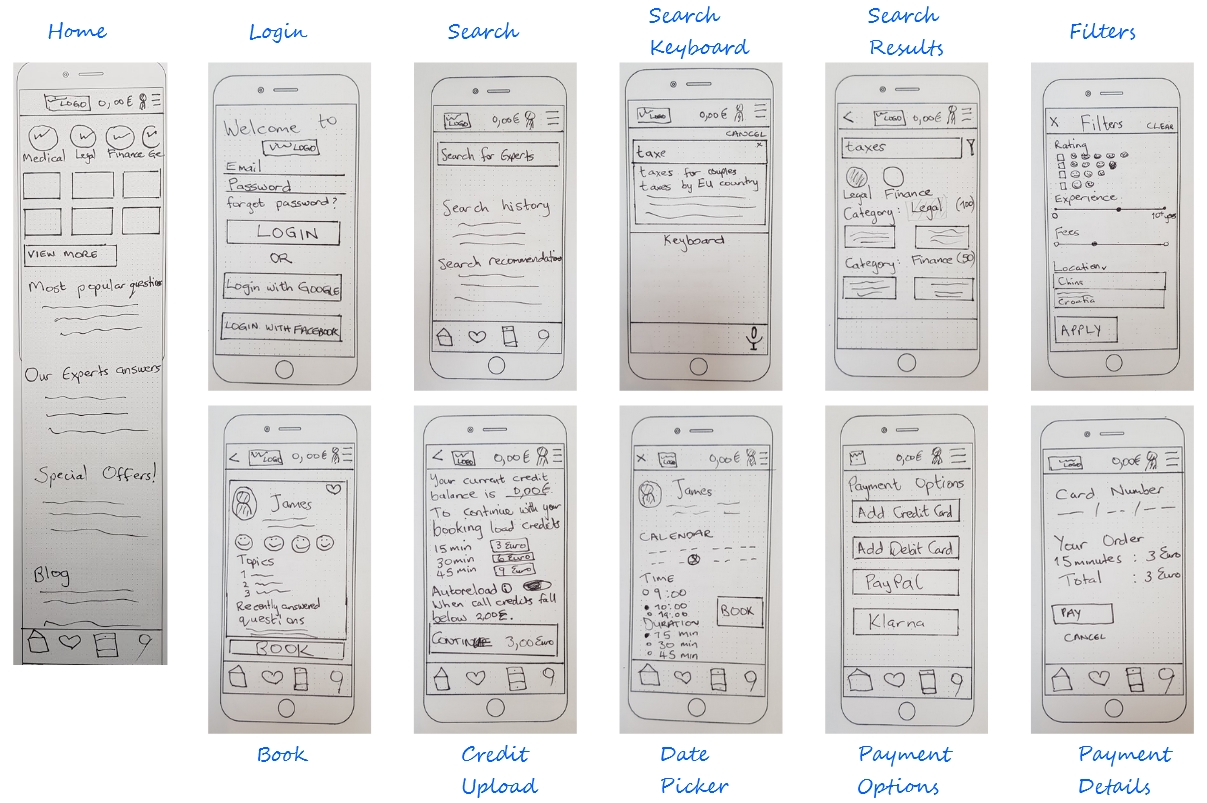 Home
LOGO 0,00€
Medical Legal Finance Ge
VIEW MORE
Most popular question
Our Experts answers
Special Offers!
Blog
Login
Welcome to
LOGO
Email
Password
forget password?
LOGIN
OR
Login with GOOGLE
LOGIN WITH FACEBOOK
Search
LOGO 0,00€
Search for Experts
Search history
Search recommendation
Search
Keyboard
LOGO 0,00€
CANCEL
taxe x
taxes for couples
taxes by EU country
Keyboard
Search
Results
< LOGO 0,00€
taxes
Legal Finance
Category: Legal (100)
Category: Finance (50)
Filters
X Filters CLEAR
Rating
Experience
0 10+ yes
Fees
Location
China
Croatia
APPLY
< LOGO 0,00€
James
Topics
1
2
3
Recently answered
questions
BOOK
Book
< LOGO 0,00€
Your current credit
balance is 0,00€.
To continue with your
booking load credicts
15 min 3 Euro
30 min 6 Euro
45 min 9 Euro
Autoreload
When call credicts fall
below 2,00€.
CONTINUE 3,00 Euro
Credit
Upload
X LOGO 0,00€
James
CALENDAR
TIME
09:00
10:00
BOOK
DURATION
15 min
30 min
45 min
Date
Picker
0,00€
Payment Options
Add Credit Card
Add Debit Card
PayPal
Klarna
Payment
Options
LOGO 0,00€
Card Number
/ /
Your Order
15 minutes : 3 Euro
Total : 3 Euro
PAY
CANCEL
Payment
Details